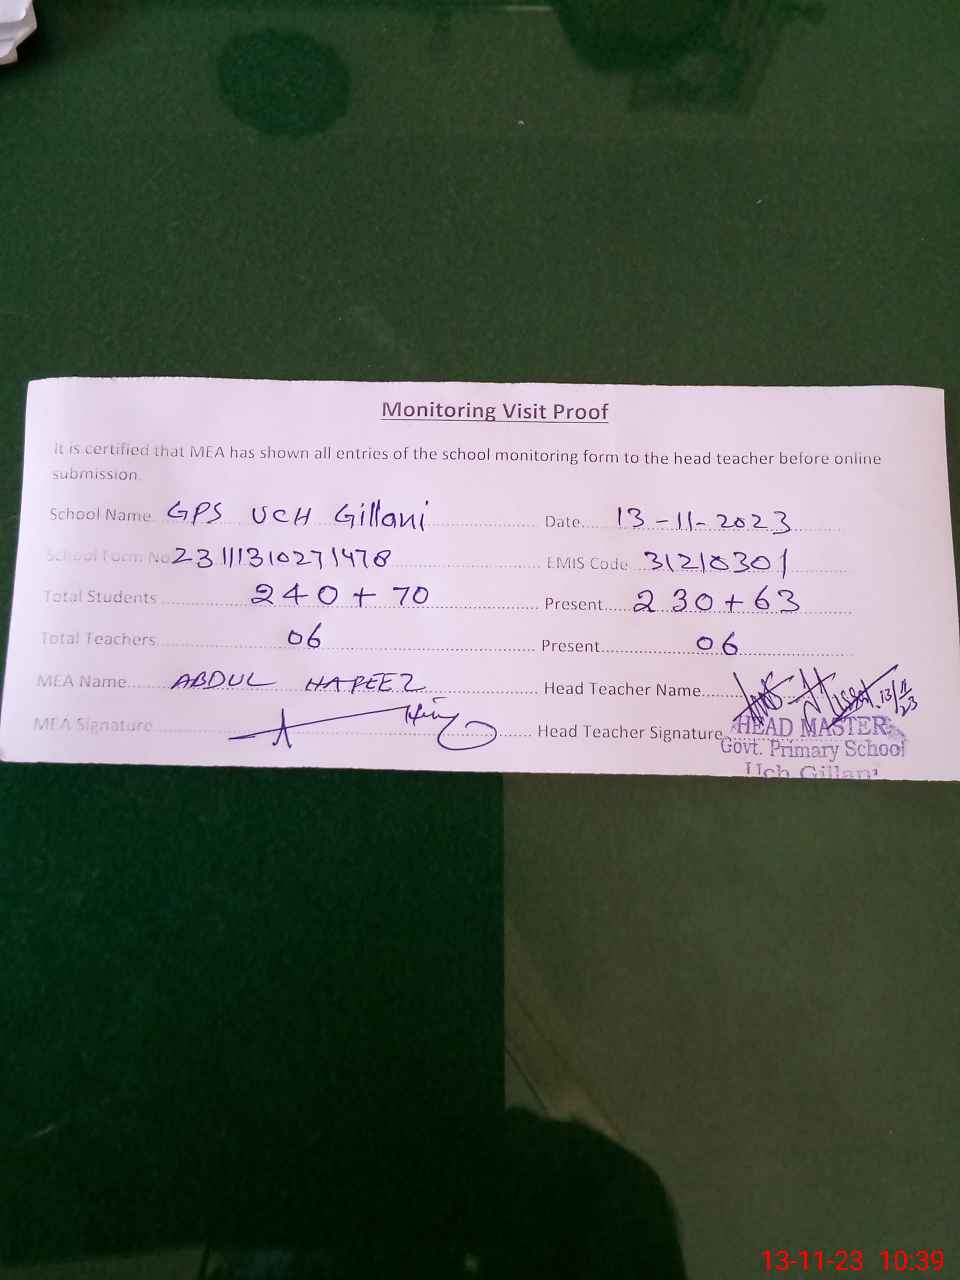 Monitoring Visit Proof
It is certified that MEA has shown all entries of the school monitoring form to the head teacher before online
submission.
School Name GPS UCH Gillani Date 13-11-2023
School Form No 23111310271478 EMIS Code 31210301
Total Students 240+70 Present 230+63
Total Teachers 06 Present 06
MEA Name ABDUL HAFEEZ Head Teacher Name
MEA Signature Head Teacher Signature
13/11/23
HEAD MASTER
Govt. Primary School
Uch Gillani
13-11-23 10:39